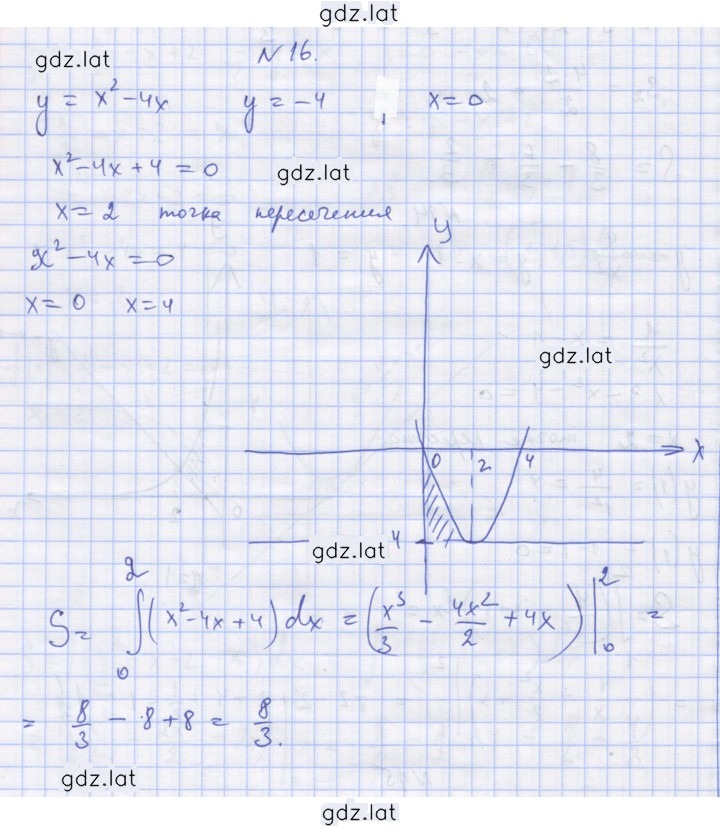 gdz.lat
№ 16.
gdz.lat
y = x² - 4x y = -4 , x = 0
x² - 4x + 4 = 0
gdz.lat
x = 2 точка пересечения
x² - 4x = 0
x = 0 x = 4
y
gdz.lat
0 2 4 x
4
gdz.lat
S = ∫₀² (x² - 4x + 4) dx = (x³/3 - 4x²/2 + 4x) |₀² =
= 8/3 - 8 + 8 = 8/3.
gdz.lat
gdz.lat